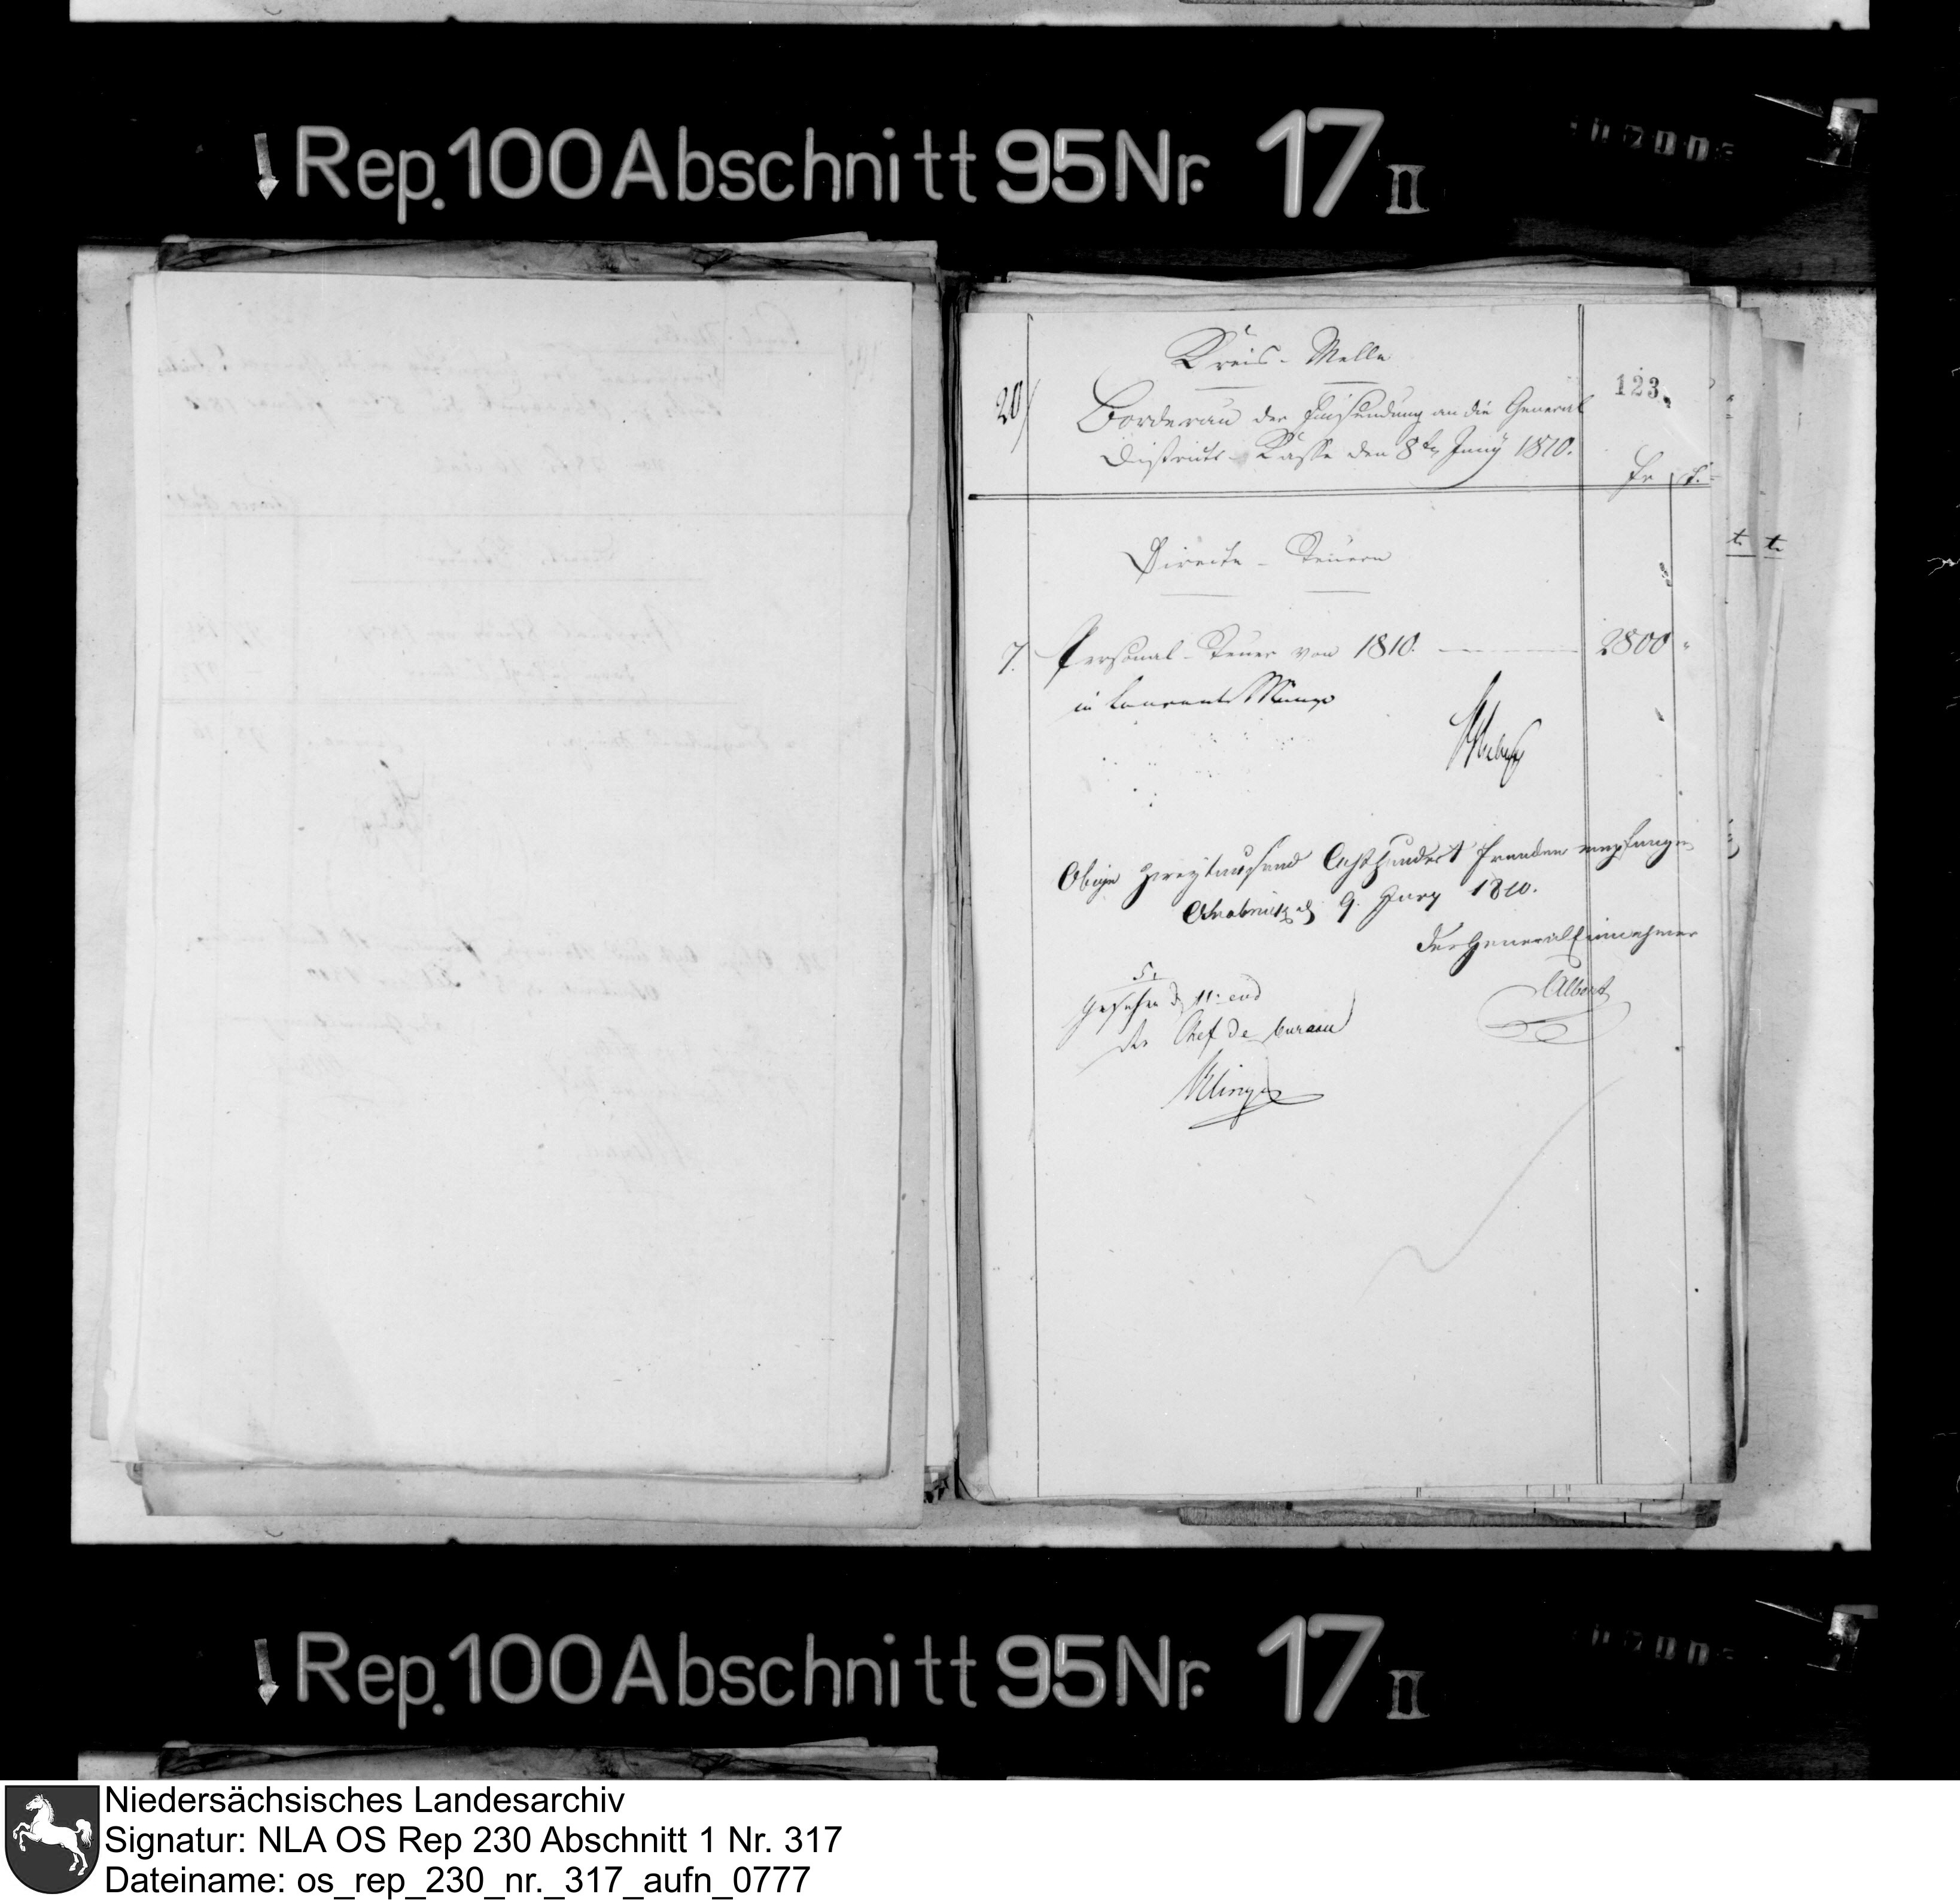 Rep. 100 Abschnitt 95 Nr. 17 II
Kreis-Melle
123.
20/
Borderau der Einsendung an die General
Districts-Kasse den 8ten Juny 1810.
Fr. C.
Directe-Steuern
7. Personal-Steuer von 1810. 2800 "
in Courant Münze
Obige zweytausend Achthundert Franken empfangen
Osnabrück d 9. Juny 1810.
Der General Einnehmer
Albert
Gesehen d 11. ejd
der Chef de bureau
Klinge
Rep. 100 Abschnitt 95 Nr. 17 II
Niedersächsisches Landesarchiv
Signatur: NLA OS Rep 230 Abschnitt 1 Nr. 317
Dateiname: os_rep_230_nr._317_aufn_0777